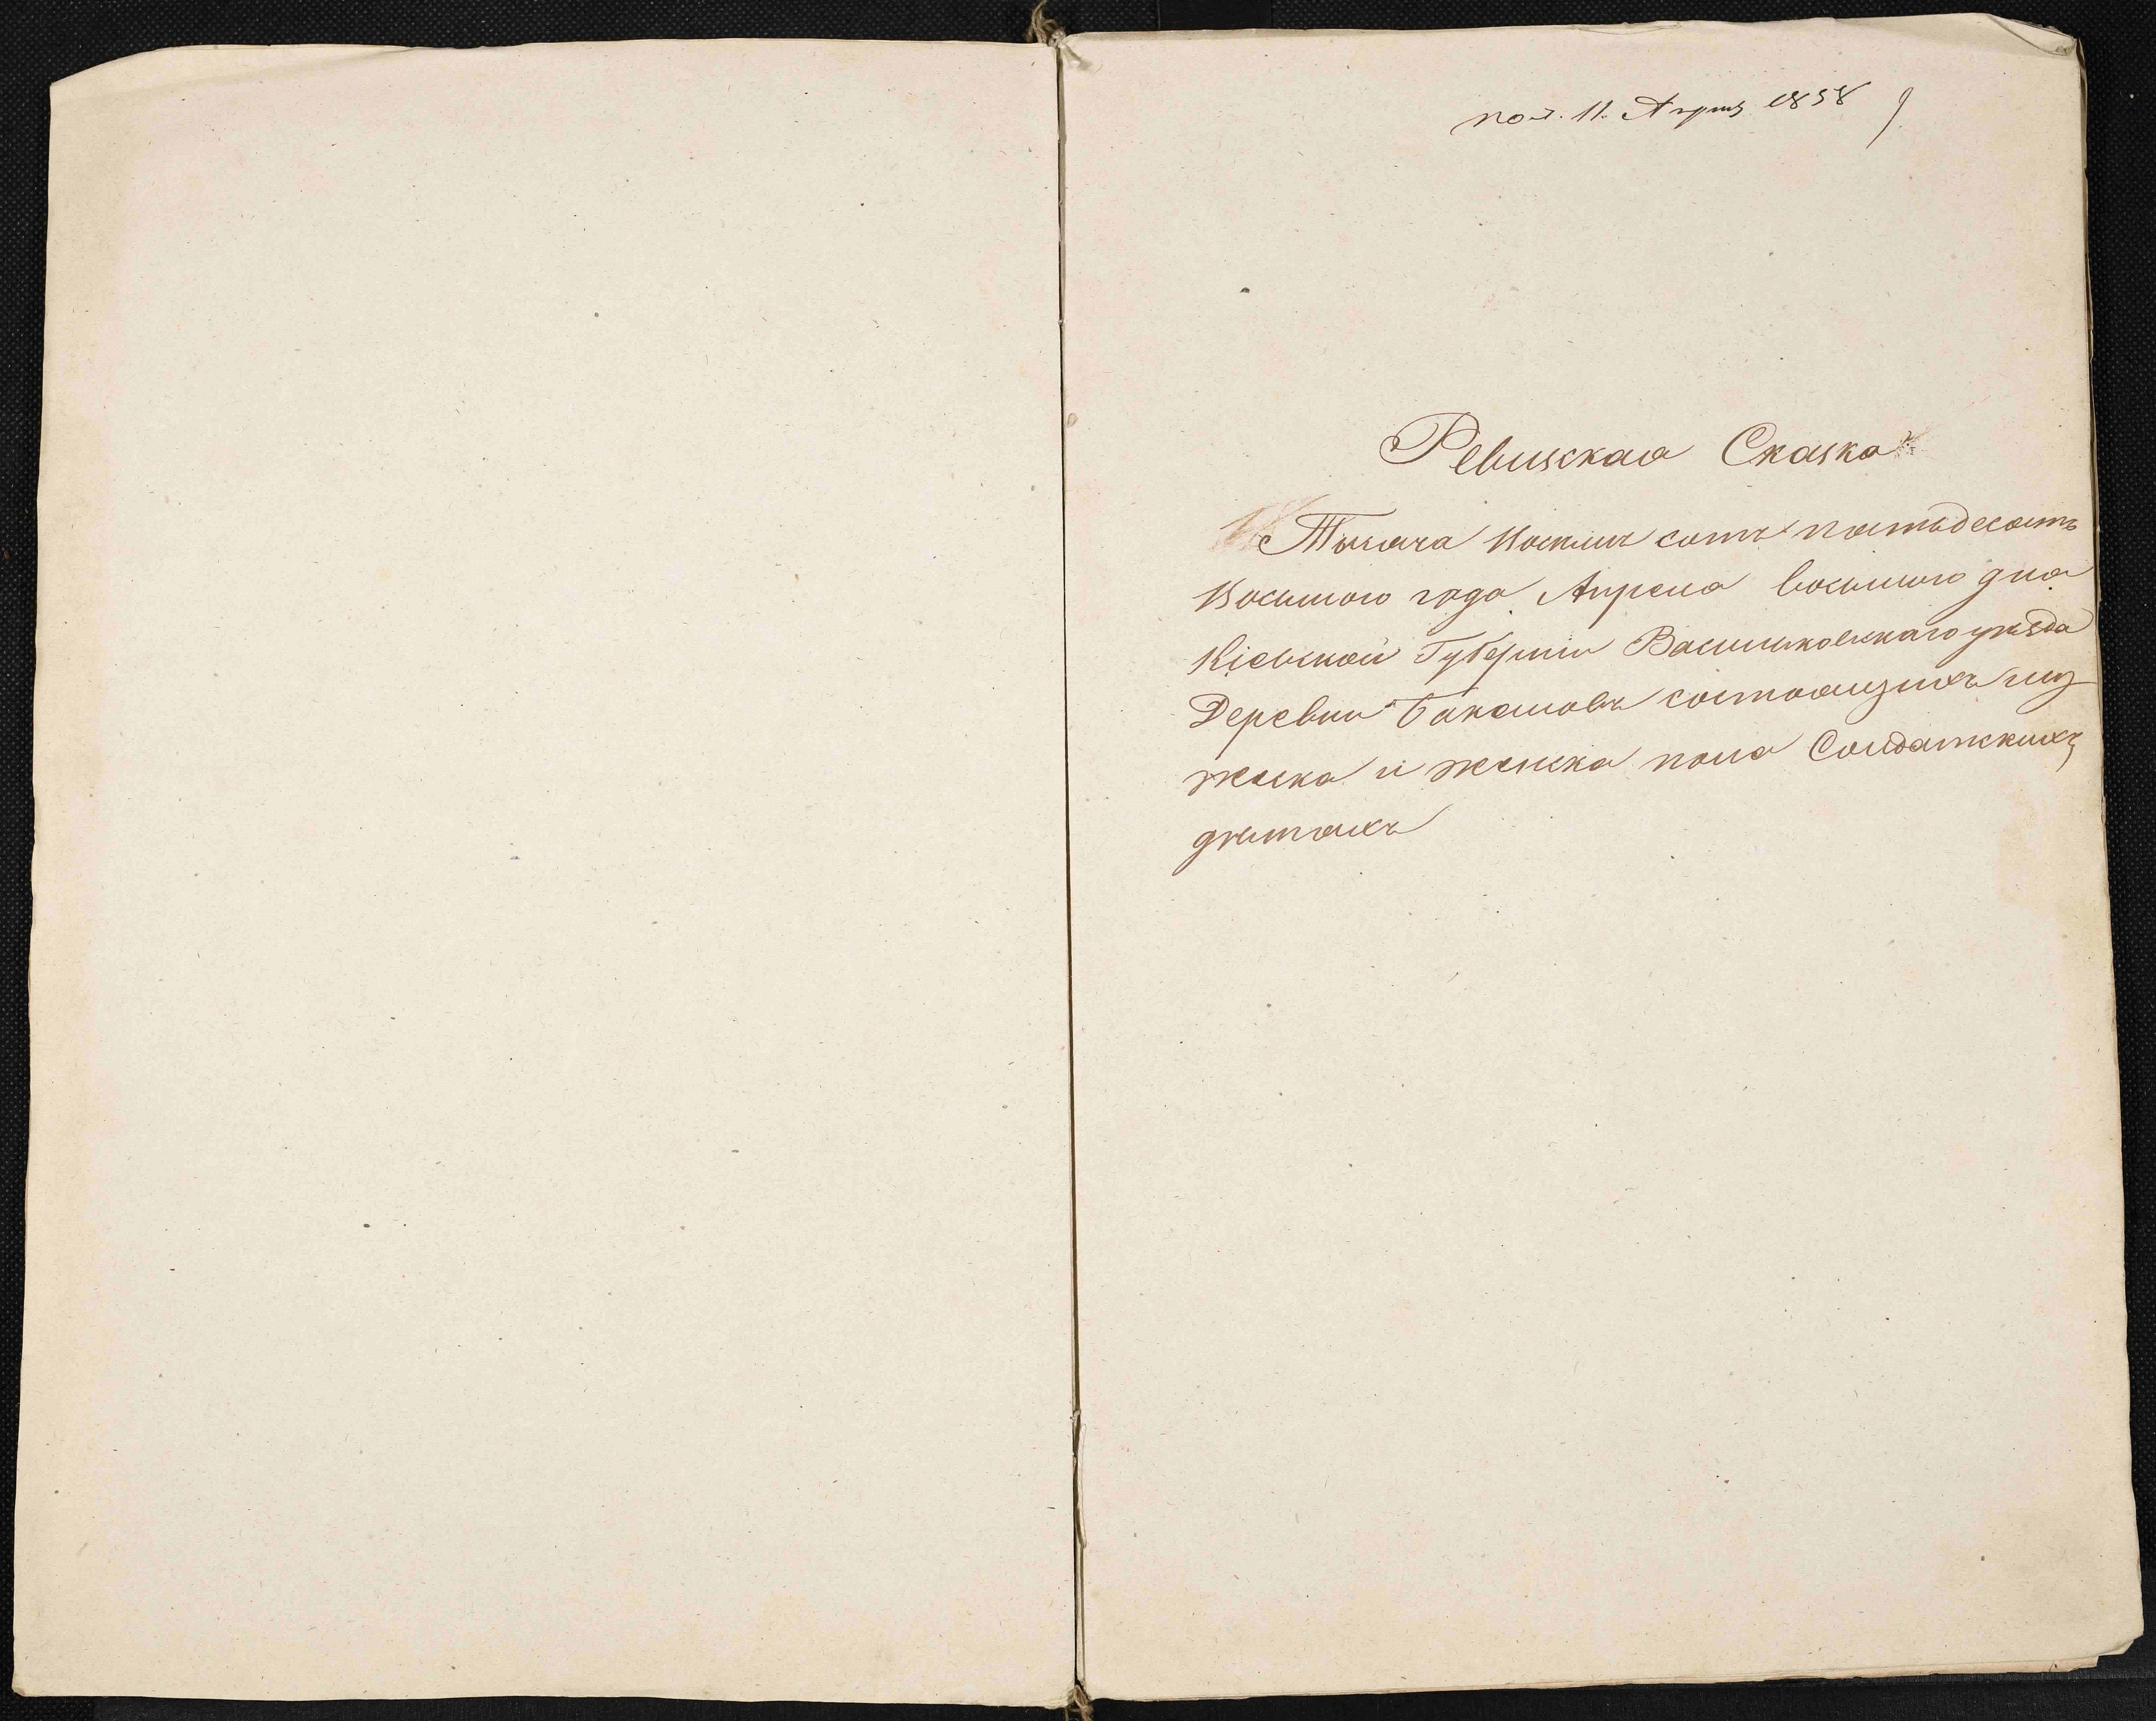 пол. 11. Апрѣ 1858
Ревизская Сказка
Тысяча Восемь сотъ пятьдесятъ
Восьмого года Апреля восьмого дня
Кіевской Губерніи Васильковскаго уѣзда
Деревни состоящихъ
мужска и женска пола Солдатскихъ
дѣтяхъ